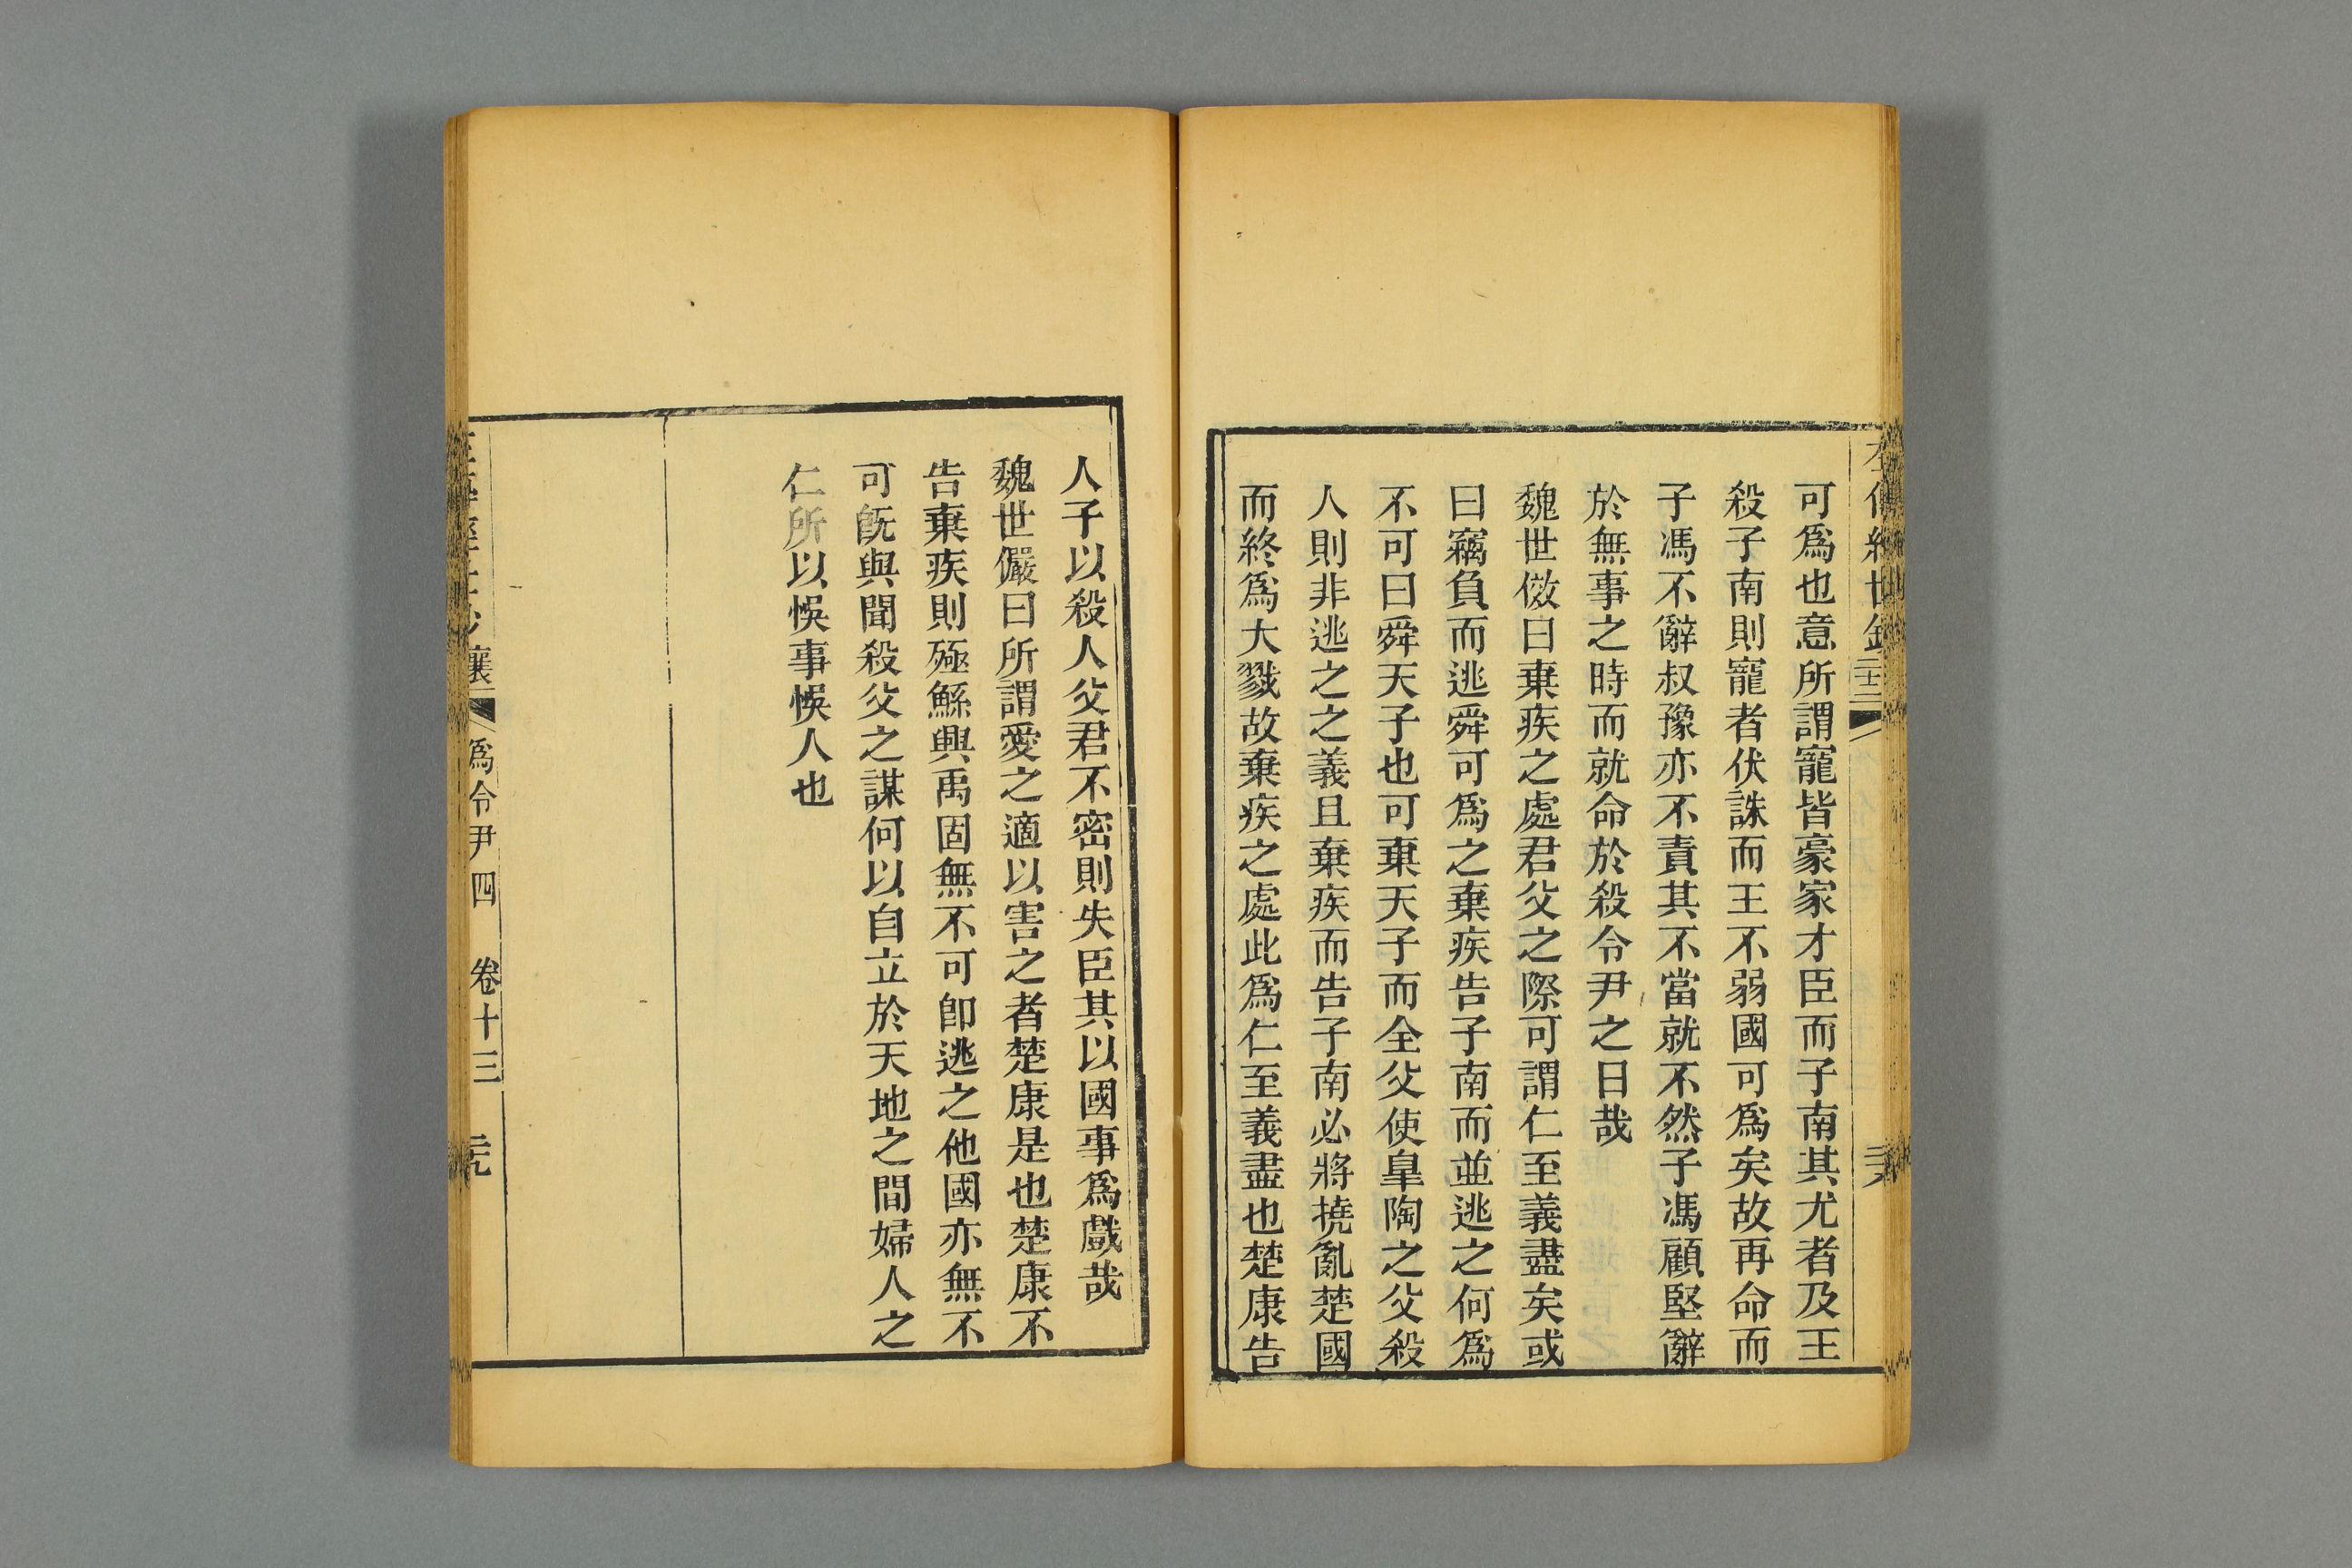 可爲也意所謂寵皆豪家才臣而子南其尤者及王
殺子南則寵者伏誅而王不弱國可爲矣故再命而
子馮不辭叔豫亦不責其不當就不然子馮顧堅辭
於無事之時而就命於殺令尹之日哉
魏世傚曰棄疾之處君父之際可謂仁至義盡矣或
曰竊負而逃舜可爲之棄疾告子南而並逃之何爲
不可曰舜天子也可棄天子而全父使皐陶之父殺
人則非逃之之義且棄疾而告子南必將撓亂楚國
而終爲大戮故棄疾之處此爲仁至義盡也楚康告
人子以殺人父君不密則失臣其以國事爲戲哉
魏世儼曰所謂愛之適以害之者楚康是也楚康不
告棄疾則殛鯀興禹固無不可卽逃之他國亦無不
可旣與聞殺父之謀何以自立於天地之間婦人之
仁所以悞事悞人也
襄 爲令尹四 卷十三 二九